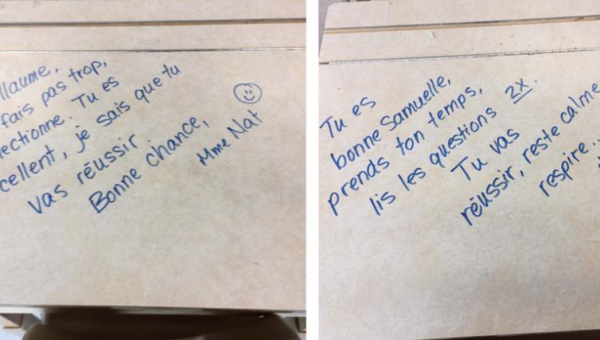 llaume,
fais pas trop,
ectionne. Tu es
cellent, je sais que tu
vas réussir
Bonne chance,
Mme Nat
Tu es
bonne Samuelle,
prends ton temps,
lis les questions 2x.
Tu vas
réussir, reste calme
respire...